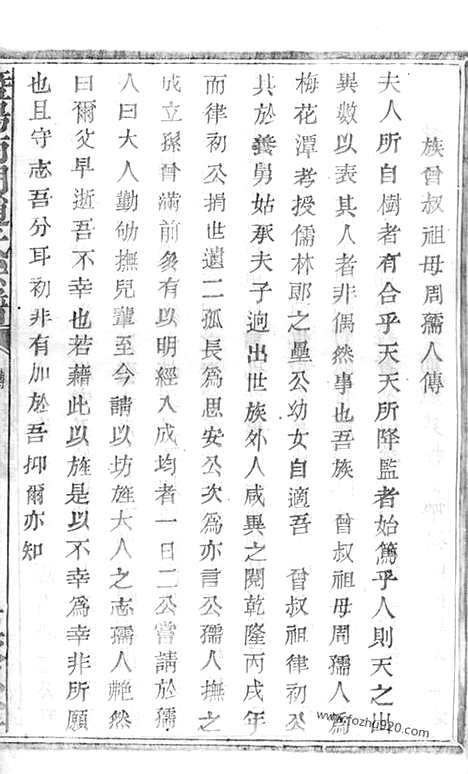 族曾叔祖母周孺人傳
夫人所自樹者有合乎天天所降監者始篤乎人則天之出
異數以表其人者非偶然事也吾族 曾叔祖母周孺人爲
梅花潭考授儒林郎之壘公幼女自適吾 曾叔祖律初公
其於養舅姑承夫子逈出世族外人咸異之閱乾隆丙戌年
而律初公捐世遺二孤長爲思安公次爲亦言公孺人撫之
成立孫曾滿前多有以明經入成均者一日二公嘗請於孺
人曰大人勤劬撫兒輩至今請以坊旌大人之志孺人艴然
曰爾父早逝吾不幸也若藉此以旌是以不幸爲幸非所願
也且守志吾分耳初非有加於吾抑爾亦知
www.fozhu920.com